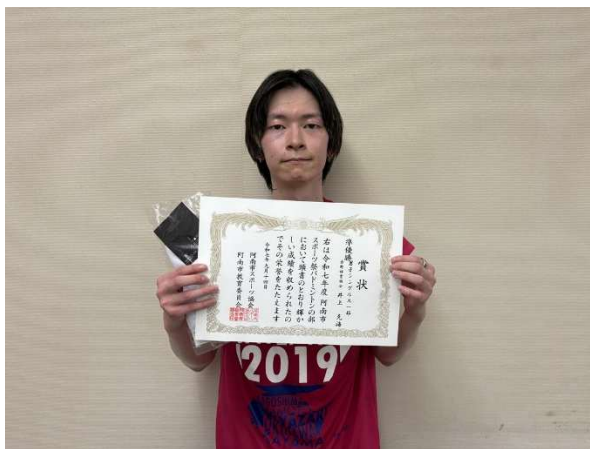 賞状
準優勝 男子シングルス一部
井上
右は令和七年度阿南市
スポーツ祭バドミントンの部
において頭書のとおり輝か
しい成績を収められたの
でその栄誉をたたえます
令和七年九月十四日
阿南市スポーツ協会
阿南市教育委員会
2019